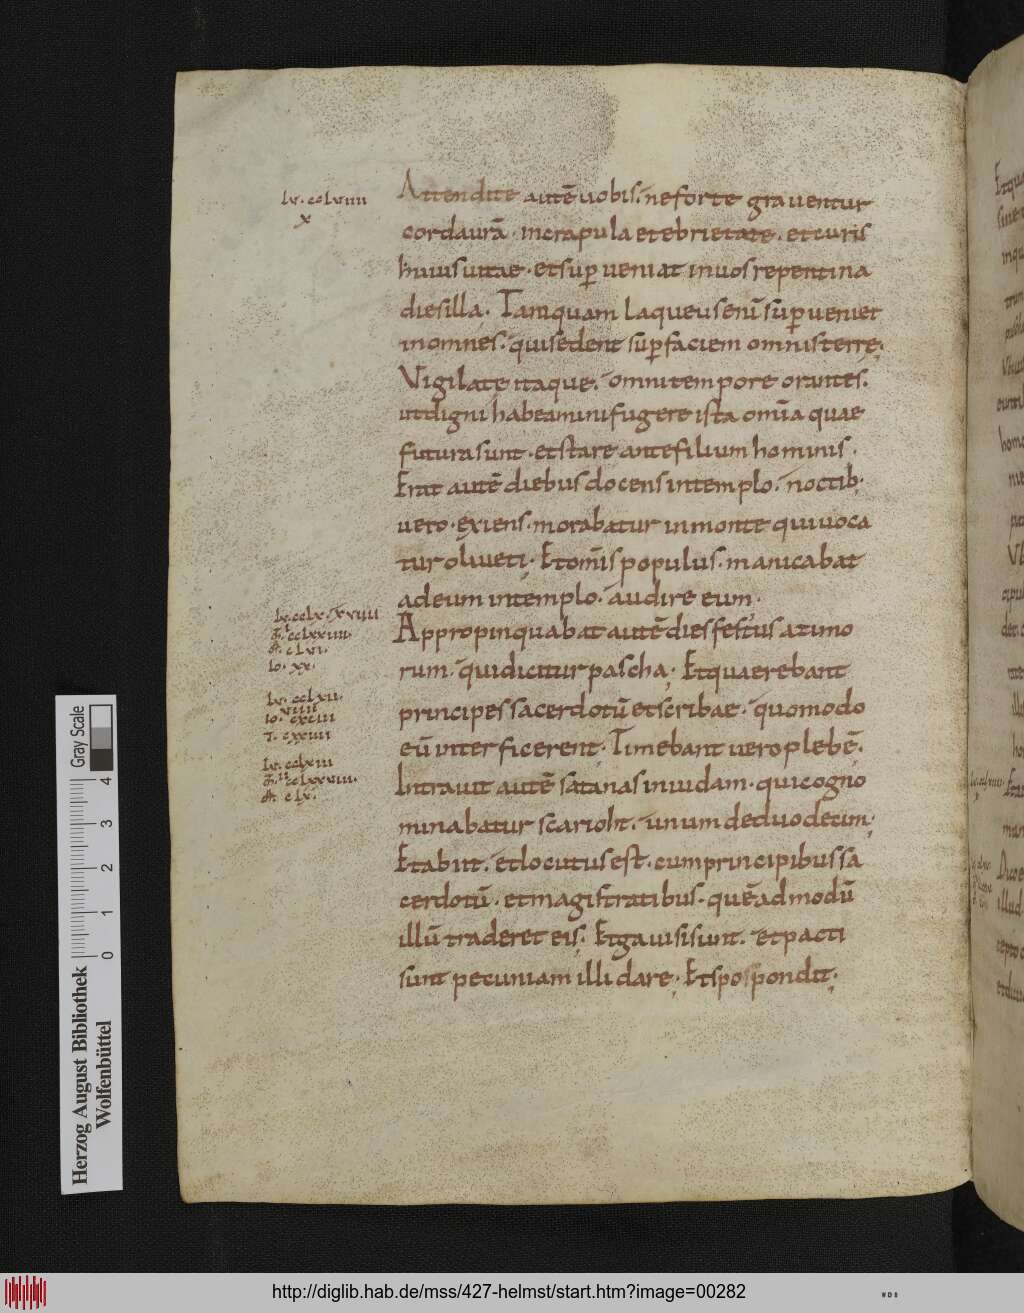 Lv. cclviiii
x
Attendite autē uobis. ne forte grauentur
corda urā. in crapula et ebrietate. et curis
huius uitae. et sup ueniat in uos repentina
dies illa. Tamquam laqueus enī sup ueniet
in omnes. qui sedent sup faciem omnis terre;
Vigilate itaque. omni tempore orantes.
ut digni habeamini fugere ista omīa quae
futura sunt. et stare ante filium hominis.
Erat autē diebus docens in templo. noctib;
uero. exiens. morabatur in monte qui uoca
tur oliueti; Et omīs populus. manicabat
ad eum in templo. audire eum;
Lv. cclx. xviiii
cclxxiiii.
clvi.
Io. xx.
Appropinquabat autē dies festus azimo
rum. qui dicitur pascha; Et quaerebant
Lv. cclxii.
viiii
Io. cxciii
cxxiiii
principes sacerdotū et scribae. quomodo
eū interficerent; Timebant uero plebē;
Lv. cclxiii
cclxxviii.
clx.
Intrauit autē satanas in iudam. qui cogno
minabatur scarioht. unum de duodecim;
Et abiit. et locutus est. cum principibus sa
cerdotū. et magistratibus. quēadmodū
illū traderet eis; Et gauisi sunt. et pacti
sunt pecuniam illi dare; Et spospondit;
Etqua
Herzog August Bibliothek
Wolfenbüttel
Gray Scale
0 1 2 3 4
http://diglib.hab.de/mss/427-helmst/start.htm?image=00282